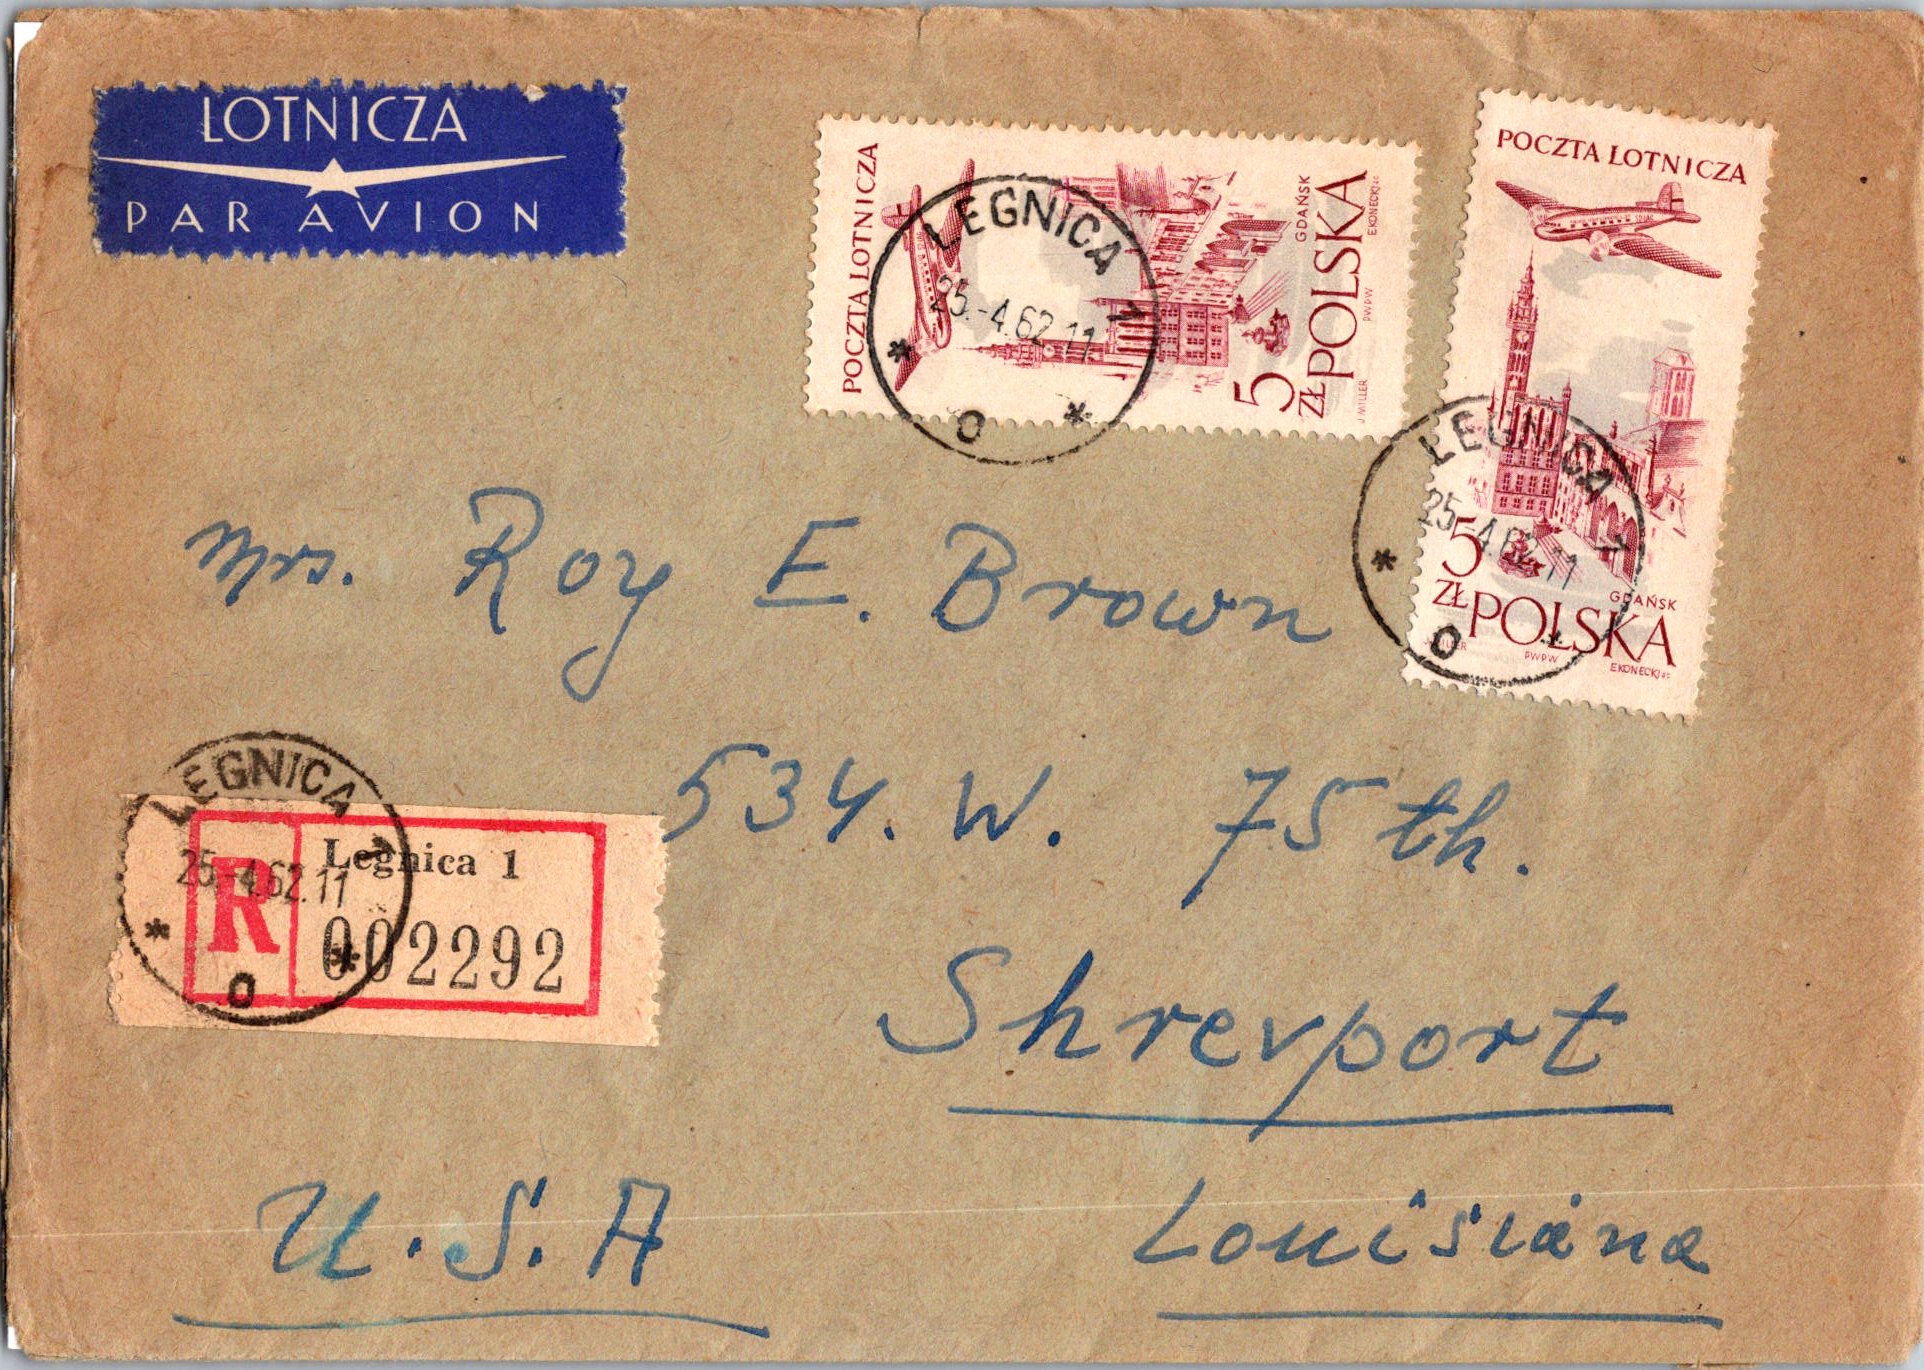 LOTNICZA
PAR AVION
POCZTA LOTNICZA
GDAŃSK
5 ZŁ POLSKA
J. MILLER PWPW E.KONECKI sc.
LEGNICA 1
25.-4.62.11
* O *
POCZTA LOTNICZA
GDAŃSK
5 ZŁ POLSKA
PWPW E.KONECKI sc.
LEGNICA 1
25.-4.62.11
* O *
Mrs. Roy E. Brown
534. W. 75 th.
Shrevport
Louisiana
U.S.A
LEGNICA 1
25.-4.62.11
* O *
R
Legnica 1
002292